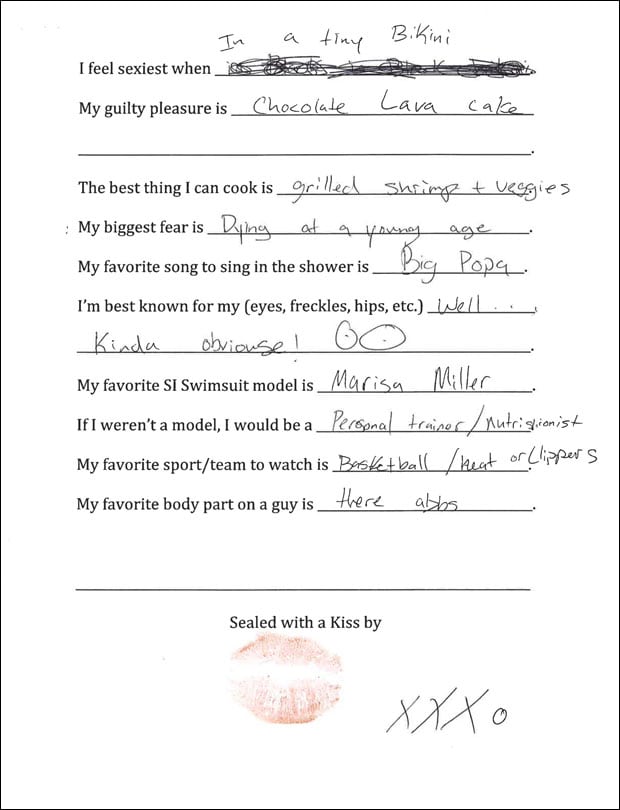 In a tiny Bikini
I feel sexiest when
My guilty pleasure is Chocolate Lava cake
.
The best thing I can cook is grilled shrimp + veggies
: My biggest fear is Dying at a young age .
My favorite song to sing in the shower is Big Popa .
I'm best known for my (eyes, freckles, hips, etc.) Well . . . ,
Kinda obviouse! .
My favorite SI Swimsuit model is Marisa Miller .
If I weren't a model, I would be a Personal trainer/nutristionist
My favorite sport/team to watch is Basketball /heat or Clippers
My favorite body part on a guy is there abbs .
Sealed with a Kiss by
XXXo